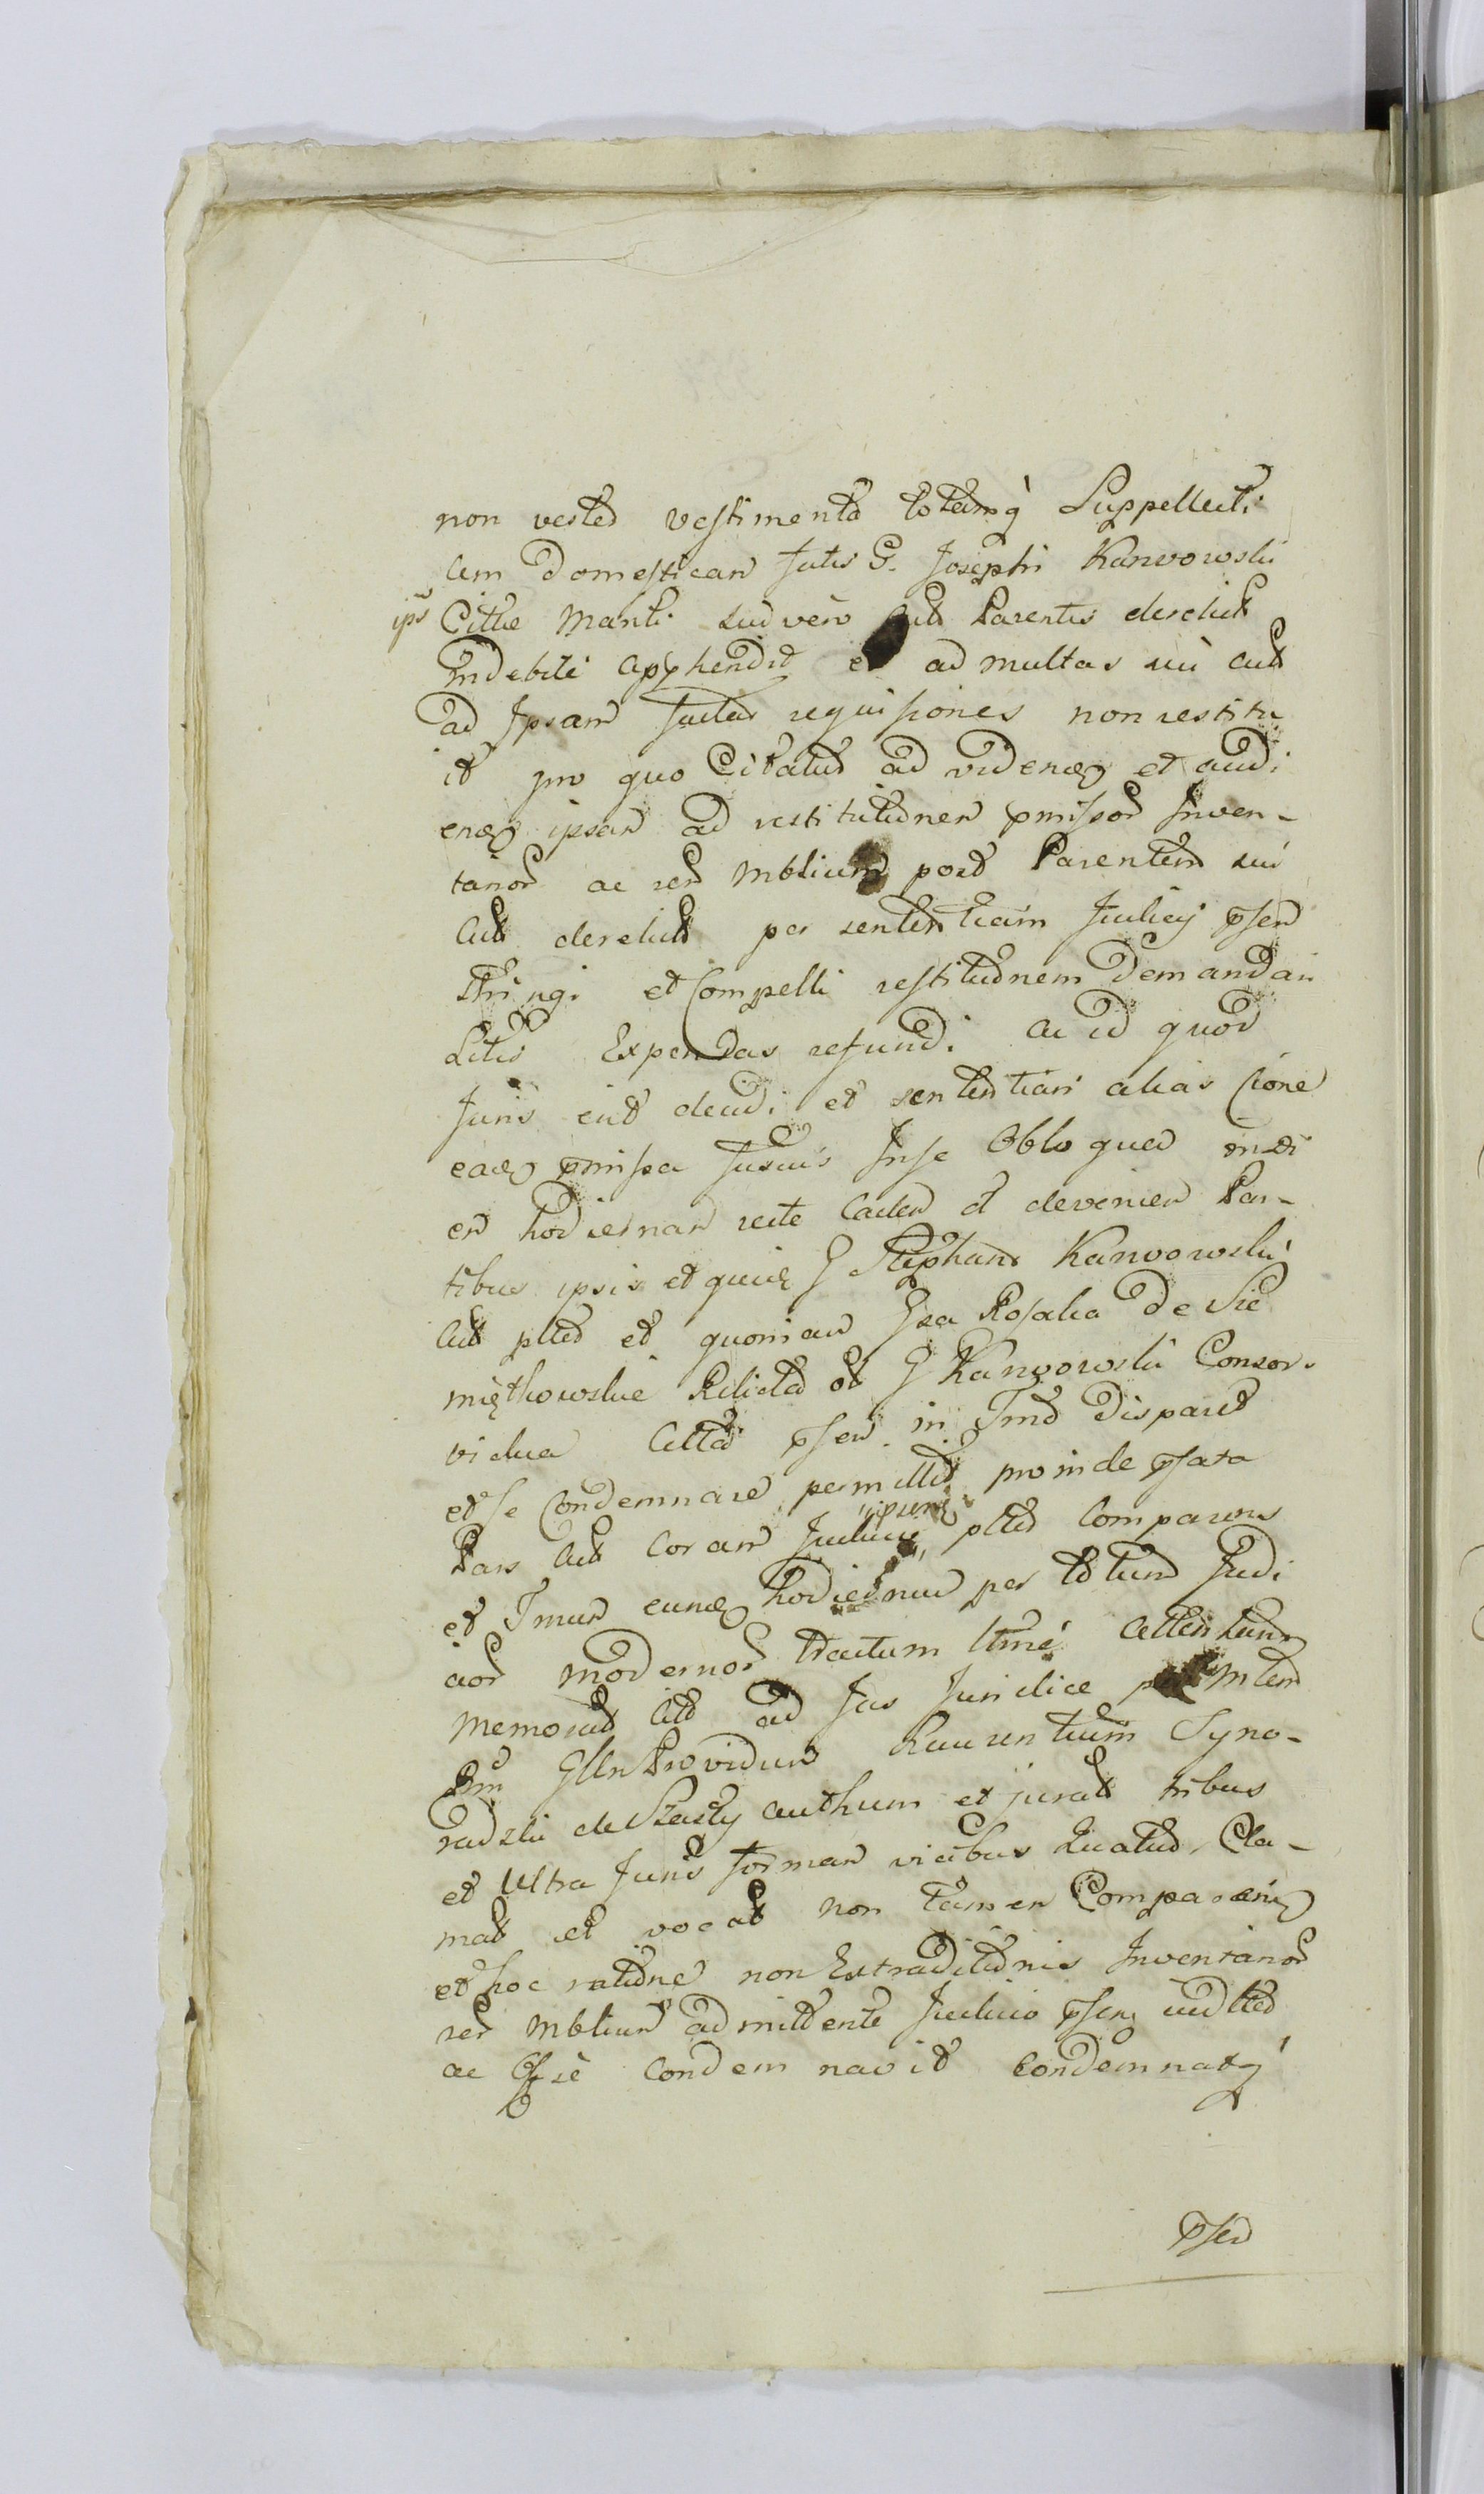 non vestes vestimenta totamq̀ Suppellecti
lem Domesticam fatis G. Josephi Karwowski
ips Cittae Mariti sui vero Act Parentis derelict
Indebite apphendit et ad multas sui Act
ad Ipsam factas requisiones non restitu
it pro quo Citatus ad videnᷣ et audi
enᷣ ipsam ad restitutionem pmissor Inven-
tarior ac rer mblium post Parentem sui
Act derelict per sententiam Judicij psen
stringi et Compelli restitutionem Demandari
Litis Expensas refundi ac id quod
Juris erit decidi et sententiari alias Cione
eaᷣ pmissa fusius Inse Obloquen in Di
em hodiernam recte Caden et devenien Par-
tibus ipsis et quia G Stephans Karwowski
Act pltus et quoniam Gsa Rosalia De Sie
miątkowskie Relicta ol G Karwowski Consor.
vidua Citta psen in Tmo Disparuit
et se Condemnare permittit proinde psata
Pars Act Coram Judicio ipsius pltus Comparens
et Tmum eunᷣ hodiernum per totum Judi
cior modernor tractum ltme attentans
memorat Cit ad Jus Juridice
Pm Gllem Providum Laurentium Syno-
radzki de Szasty authum et jurat tribus
et Ultra Juris formam vicibus Citatus, Cla-
mat et vocat non tamen Comparen
et hoc ratione non Extraditionis Inventarior
rer mblium admittente Judicio psen
ac Condemnavit Condemnatq̀
psen